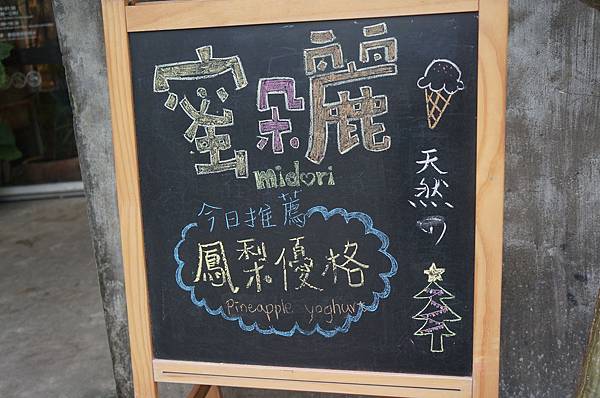 蜜朵麗
midori
今日推薦
鳳梨優格
Pineapple yoghur
天然の